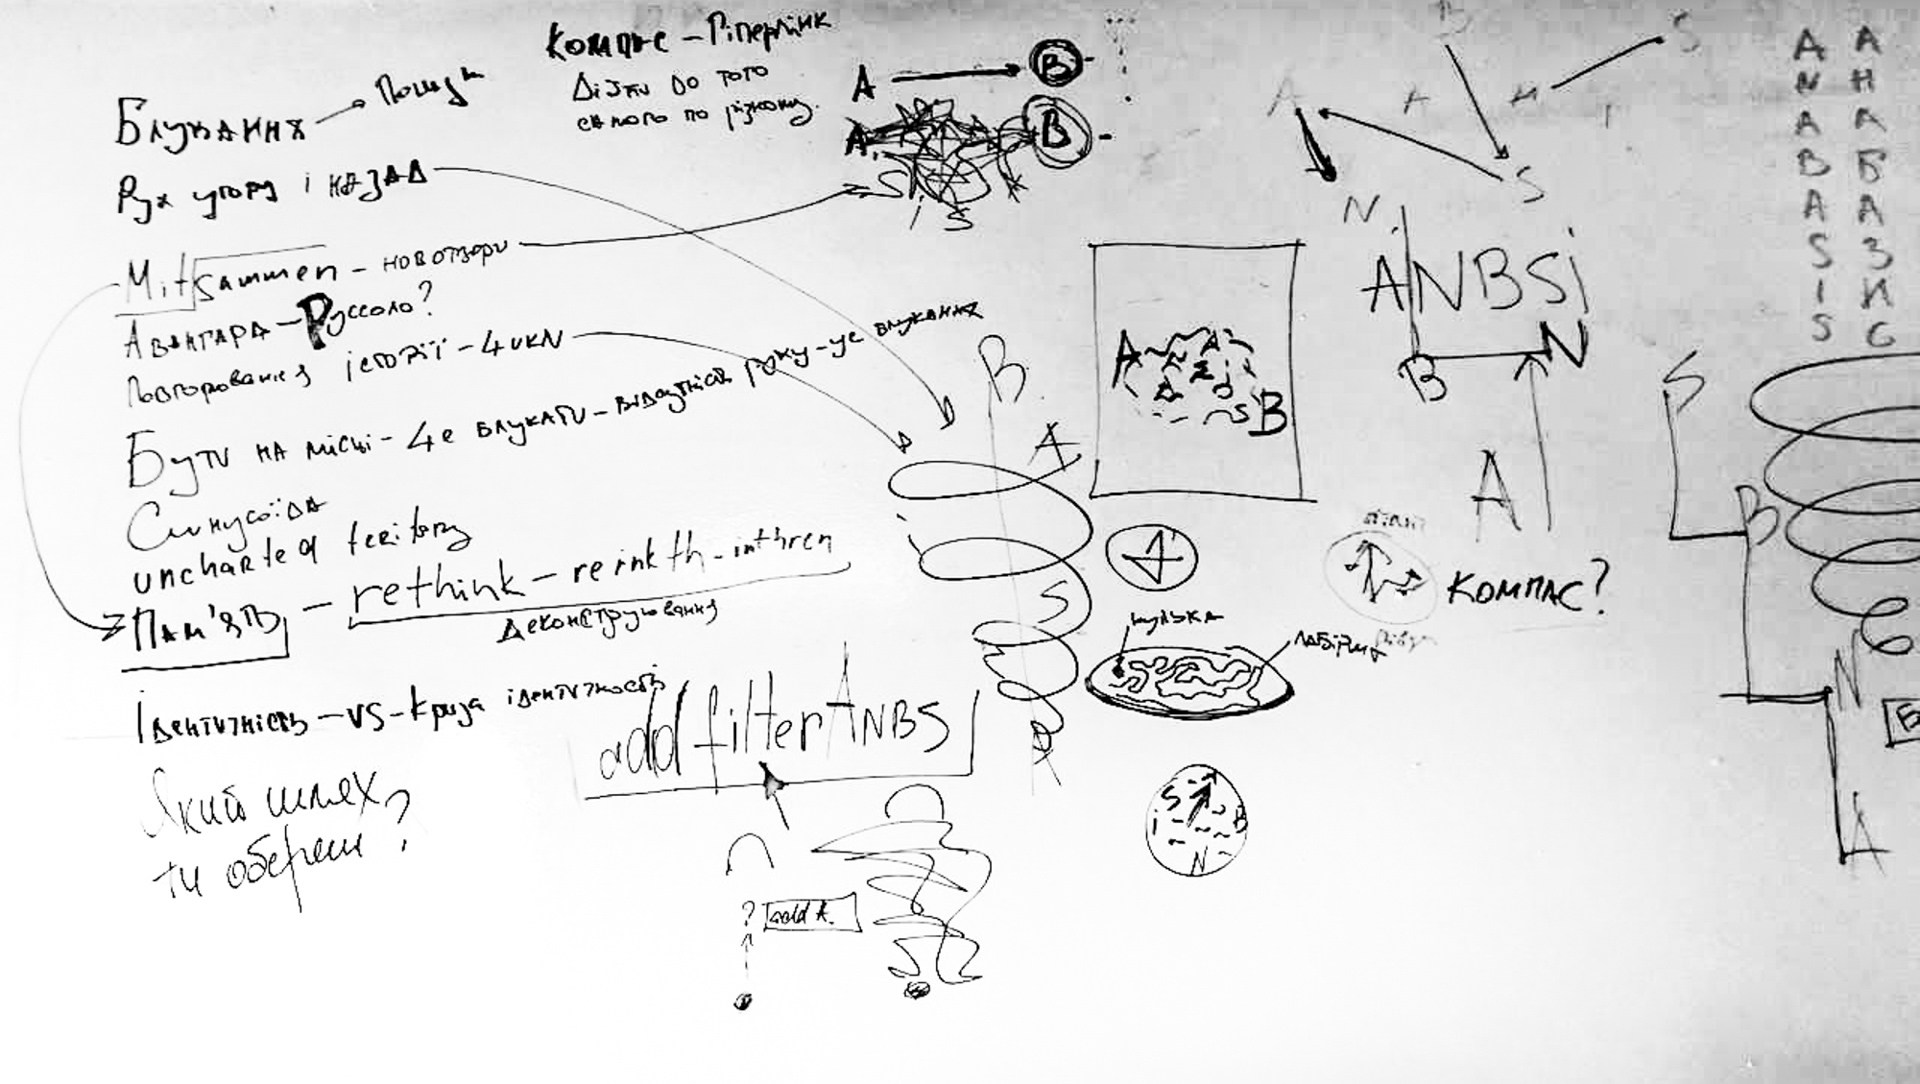 Компас – Гіперлінк
Дійти до того
самого по різному.
A → B
A. B
S i S
Блукання → Пошук
Рух угору і назад
Mitsammen – новотвори
Авангард – Руссоло?
Повторювання історії – цикл
Бути на місці – це блукати – відсутність руху – це блукання
Синусоїда
uncharted teritory
Пам'ять – rethink – rerinkth – inthren
Деконструювання
Ідентичність – vs – криза ідентичность
Який шлях
ти обереш?
add filter ANBS
? add A.
B
A
S
A
A B
S
кулька
лабіринт
S B
i N
B
S
A A
S
N
ANBSi
B N
A
КОМПАС?
A N A B A S I S
А Н А Б А З И С
S
B
N
A